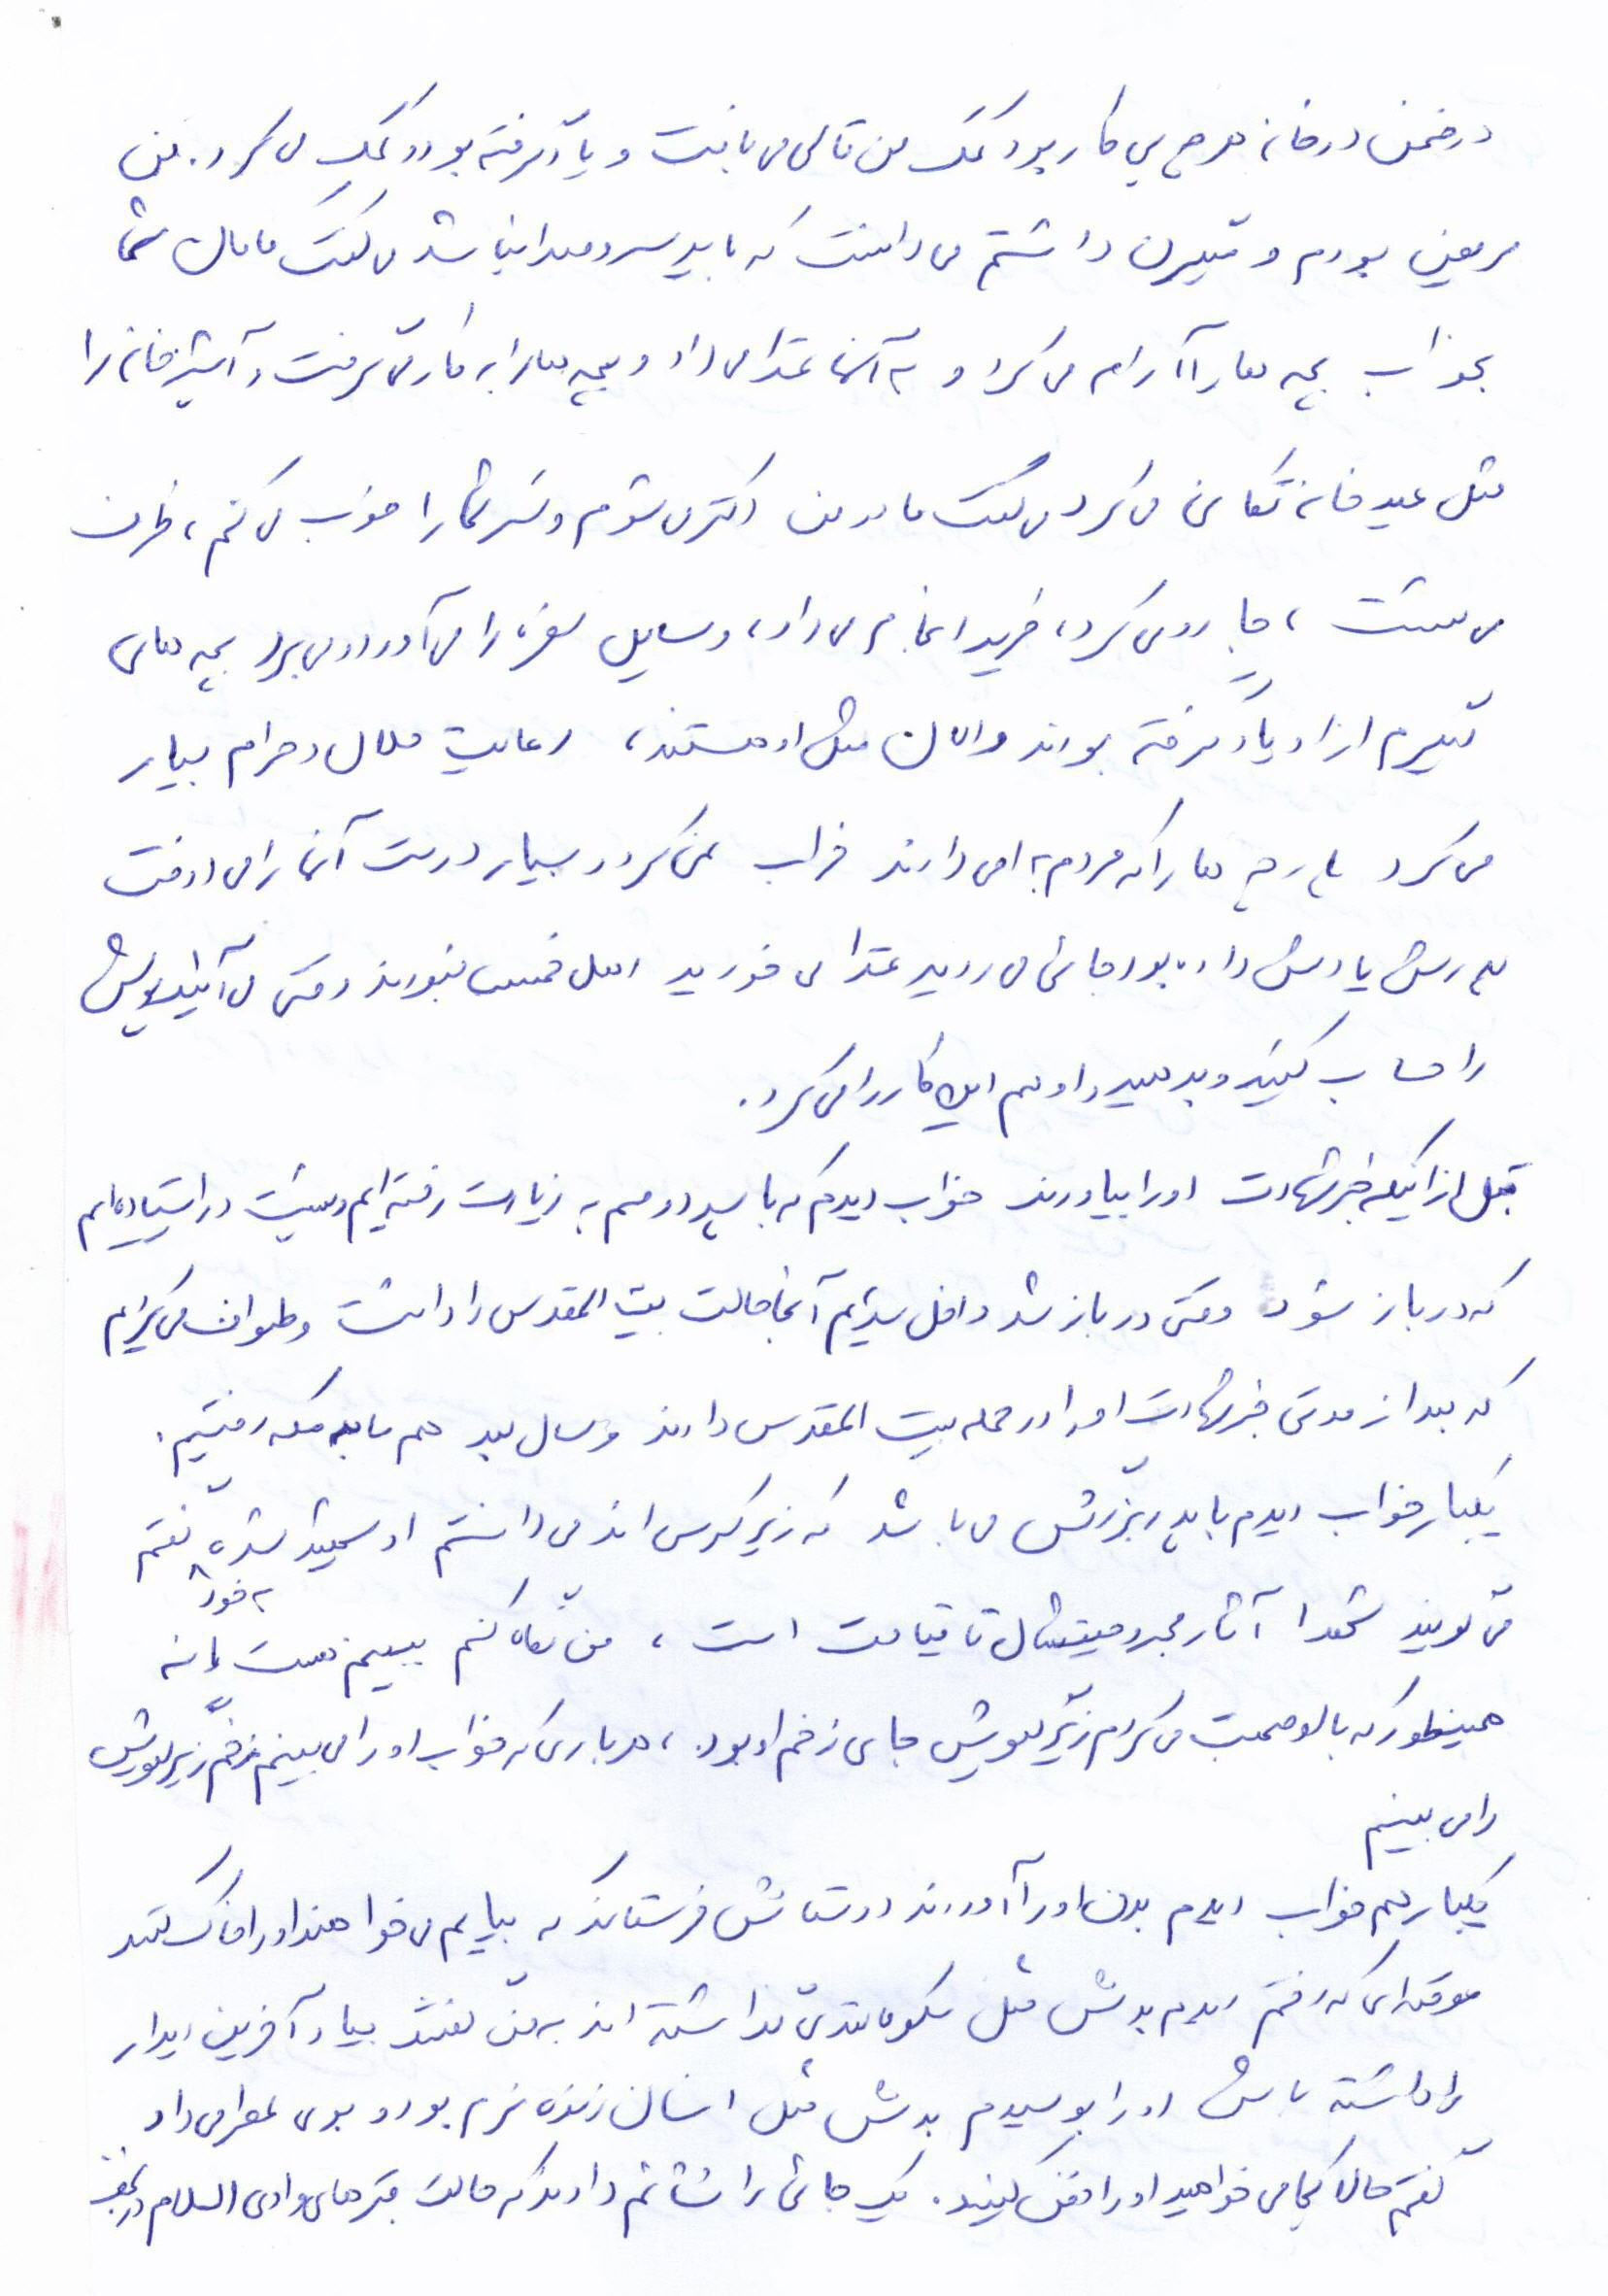 در ضمن در خانه هر چی بی کار بود کمک من قالی می بافت و یاد گرفته بود و کمک می کرد. من
مریض بودم و میگرن داشتم می دانست که باید سر و صدا نباشد می گفت مامان شما
بخواب بچه ها را آرام می کرد و به آنها غذا می داد و بچه ها را به کار می گرفت و آشپزخانه را
مثل عید خانه تکانی می کرد می گفت مادر من دکتر می شوم و سر شما را خوب می کنم، ظرف
می شست، جارو می کرد، خرید انجام می داد، وسایل سفره را می آورد و می برد بچه های
دیگرم از او یاد گرفته بودند والان مثل او هستند، رعایت حلال و حرام بسیار
می کرد پارچه ها را که مردم به او می دادند خراب نمی کرد و بسیار درست آنها را می دوخت
پدرش یادش داده بود جائی می روید غذا می خورید اهل خمس نبودند وقتی می آئید پولش
را حساب کنید و بدهید و او هم این کار را می کرد.
قبل از اینکه خبر شهادت او را بیاورند خواب دیدم که با پسر دومم به زیارت رفته ایم و پشت در ایستاده ایم
که در باز شود وقتی در باز شد داخل شدیم آنجا حالت بیت المقدس را داشت و طواف می کردیم
که بعد از مدتی خبر شهادت او را در حمله بیت المقدس دادند و سال بعد هم ما به مکه رفتیم.
یکبار خواب دیدم با پدربزرگش می باشد که زیر کرسی اند می دانستم او شهید شده به خود گفتم
می گویند شهدا آثار مجروحیتشان تا قیامت است، من نگاه کنم ببینم هست یا نه
همینطور که با او صحبت می کردم زیر گلویش جای زخم او بود، هر باری که خواب او را می بینم زخم زیر گلویش
را می بینم
یکبار هم خواب دیدم بدن او را آوردند دوستانش فرستادند که بیایم می خواهند او را خاک کنند
موقعه ای که رفتم دیدم بدنش مثل گذاشته اند به من گفتند بیا و آخرین دیدار
را داشته باش او را بوسیدم بدنش مثل انسان زنده نرم بود و بوی عطر می داد
گفتم حالا کجا می خواهید او را دفن کنید. یک جائی را نشانم دادند که حالت قبرهای وادی السلام در نجف